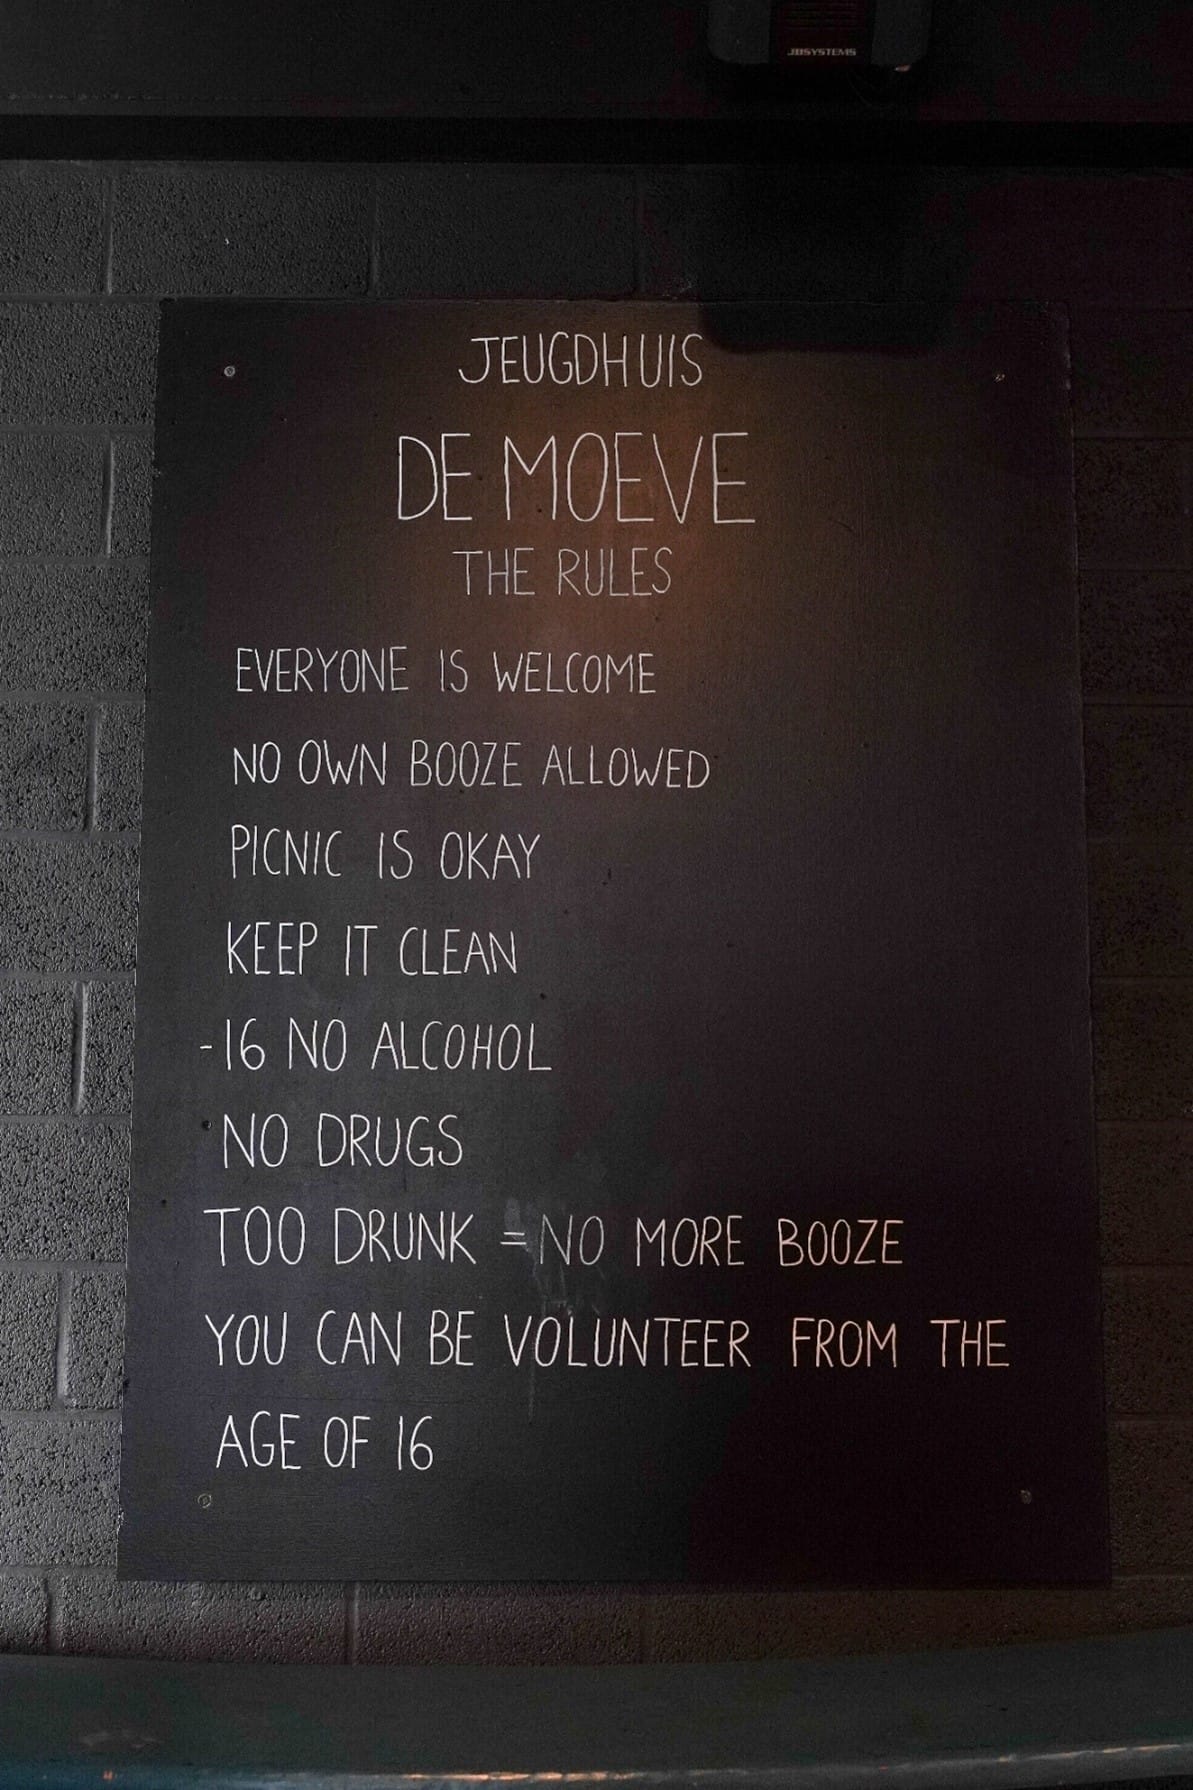 JBSYSTEMS
JEUGDHUIS
DE MOEVE
THE RULES
EVERYONE IS WELCOME
NO OWN BOOZE ALLOWED
PICNIC IS OKAY
KEEP IT CLEAN
-16 NO ALCOHOL
NO DRUGS
TOO DRUNK = NO MORE BOOZE
YOU CAN BE VOLUNTEER FROM THE
AGE OF 16